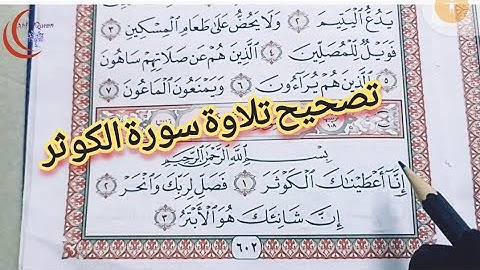 يَدُعُّ ٱلْيَتِيمَ ٢ وَلَا يَحُضُّ عَلَىٰ طَعَامِ ٱلْمِسْكِينِ ٣
فَوَيْلٌ لِّلْمُصَلِّينَ ٤ ٱلَّذِينَ هُمْ عَن صَلَاتِهِمْ سَاهُونَ
٥ ٱلَّذِينَ هُمْ يُرَآءُونَ ٦ وَيَمْنَعُونَ ٱلْمَاعُونَ ٧
تصحيح تلاوة سورة الكوثر
بِسْمِ ٱللَّهِ ٱلرَّحْمَٰنِ ٱلرَّحِيمِ
إِنَّآ أَعْطَيْنَٰكَ ٱلْكَوْثَرَ ١ فَصَلِّ لِرَبِّكَ وَٱنْحَرْ ٢
إِنَّ شَانِئَكَ هُوَ ٱلْأَبْتَرُ ٣
٦٠٢